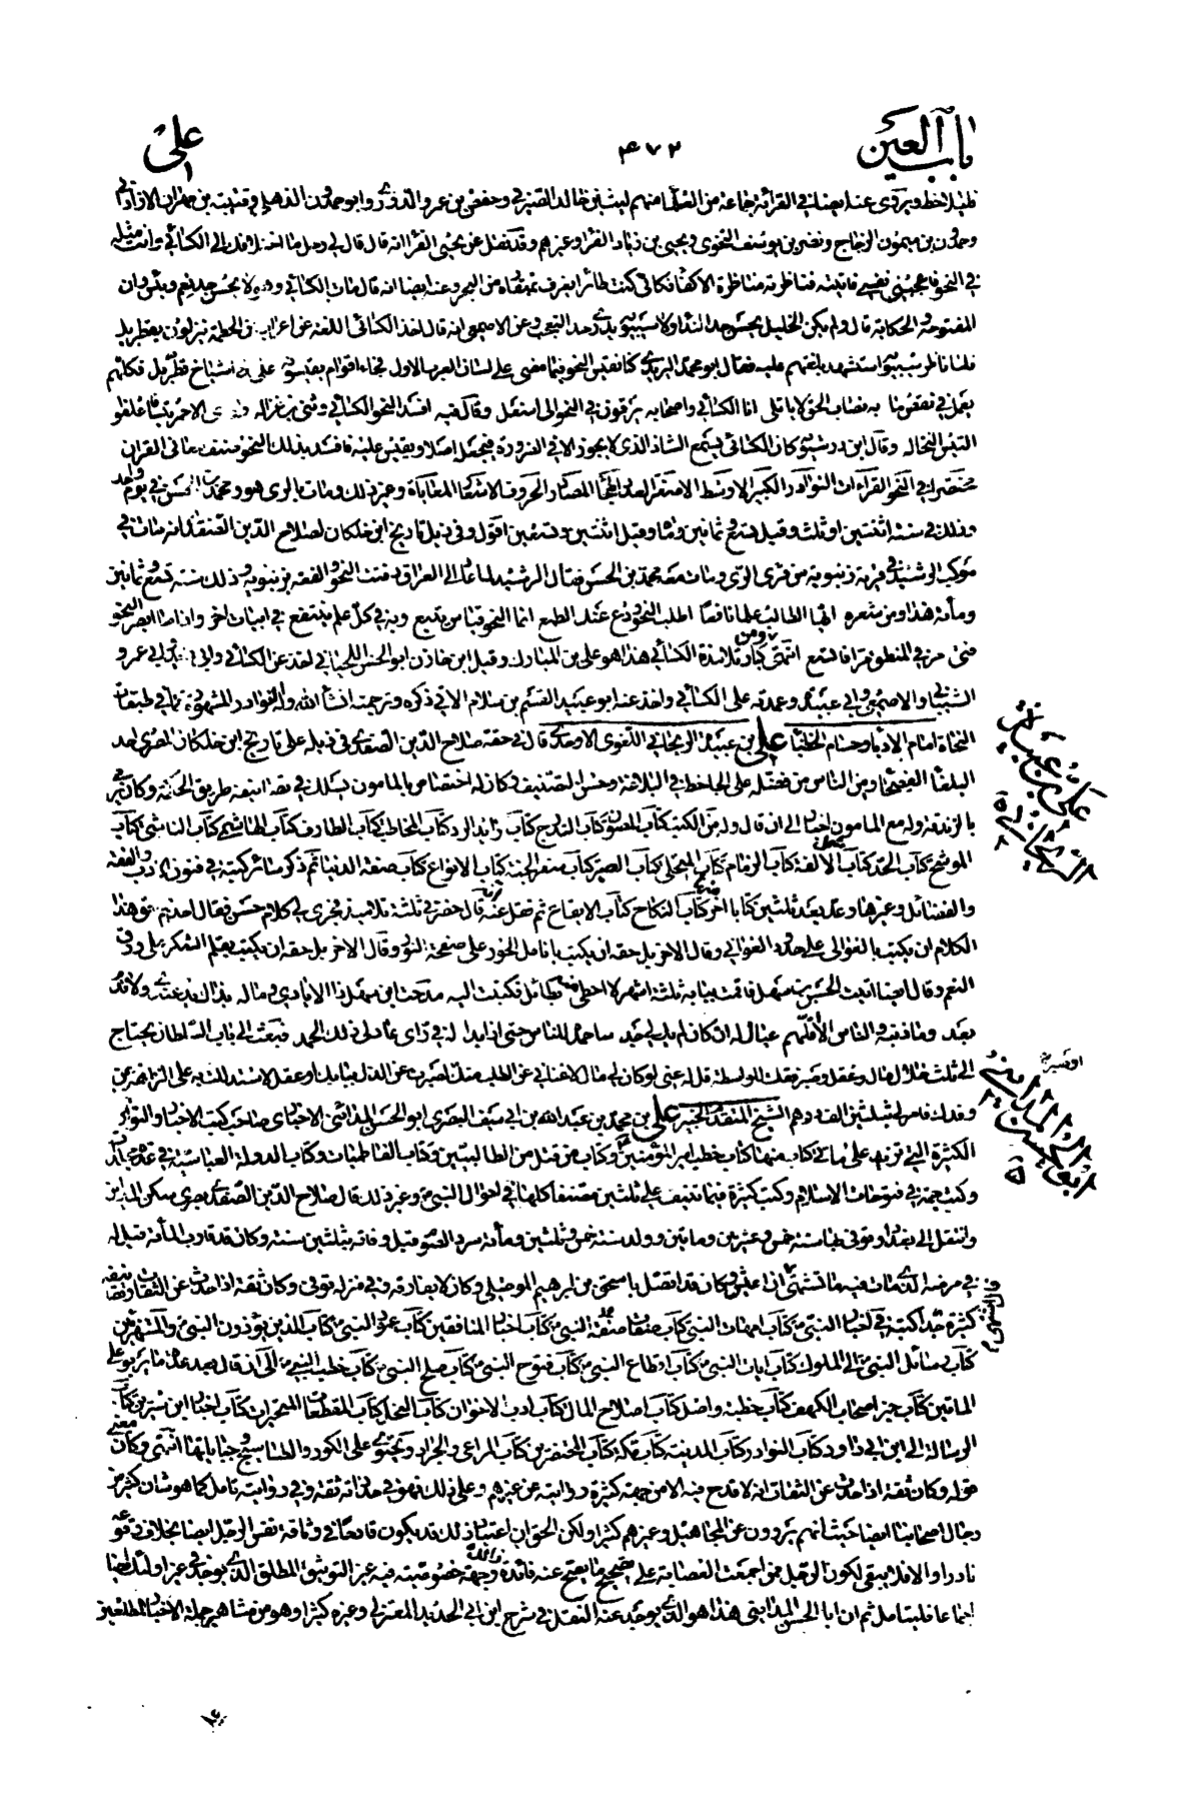 باب العين
٤٧٢
على
وحمدون بن ميمون الزجاج ونصر بن يوسف النحوى ويحيى بن زياد الفراء وغيرهم وقد نقل عن يحيى الفراء انه قال قال لى رجل ما اختلافك الى الكسائى وانت مثله
في النحو فاعجبتنى نفسى فاتيته فناظرته مناظرة الاكفاء فكانى كنت طائرا يغرف بمنقاره من البحر وعنه ايضا انه قال مات الكسائى وهو لا يحسن حد نعم وبئس وان
المفتوحة والحكاية قال ولم يكن الخليل يحسن حد النداء ولا سيبويه يدرى حد التعجب وعن الاصمعى انه قال اخذ الكسائى اللغة عن اعراب من الحطمية ينزلون بقطربل
فلما ناظر سيبويه استشهد بلغتهم عليه فقال ابو محمد اليزيدى كنا نقيس النحو فيما مضى على لسان العرب الاول فجاء اقوام يقيسونه على لغى اشياخ قطربل فكلهم
يعمل في نقض ما به نصاب الحق لا ياتلى ان الكسائى واصحابه يرقون في النحو الى اسفل وقال فيه افسد النحو الكسائى وثنى ابن غزاله الاحمر تيسا فاعلفوا
التيس النخاله وقال ابن درستويه كان الكسائى يسمع الشاذ الذى لا يجوز الا في الضرورة فيجعله اصلا ويقيس عليه فافسد بذلك النحو صنف معانى القران
مختصرا في النحو القراءات النوادر الكبير الاوسط الاصغر العدد الهجاء المصادر الحروف وغير ذلك ومات بالرى هو ومحمد بن الحسن في يوم واحد
وذلك في سنة اثنتين او ثلث وقيل تسع وثمانين ومائة وقيل اثنتين وتسعين اقول وفى ذيل تاريخ ابن خلكان لصلاح الدين الصفدى انه مات في
موكب الرشيد في قرية زنبوية من قرى الرى ومات معه محمد بن الحسن فقال الرشيد لما عاد الى العراق دفنت النحو والفقه بزنبوية وذلك سنة تسع وثمانين
ومائة هذا ومن شعره ايها الطالب علما نافعا اطلب النحو ودع عنك الطمع انما النحو قياس يتبع وبه في كل علم ينتفع في ابيات اخر واذا ما ابصر النحو
فتى مر في المنطق مرا فاتسع انتهى ومن كبار تلامذة الكسائى هذا هو على بن المبارك وقيل ابن خازن ابو الحسن اللحيانى اخذ عن الكسائى وابى عمرو
الشيبانى والاصمعى وابى عبيدة وعمدته على الكسائى واخذ عنه ابو عبيد القاسم بن سلام الاتى ذكره وترجمته انشاء الله وله النوادر المشهورة في طبقات
النحاة امام الادباء وحسام الخطباء على بن عبيدة الريحانى اللغوى الاوحدى قال في حقه صلاح الدين الصفدى في ذيله على تاريخ ابن خلكان المصرى احد
البلغاء الفصحاء ومن الناس من فضله على الجاحظ في البلاغة وحسن التصنيف وكان له اختصاص بالمامون يسلك في تصانيفه طريق الحكمة وكان يرمى
بالزندقة وله مع المامون اخبار الى ان قال وله من الكتب كتاب المصون كتاب التدرج كتاب زائد الرد كتاب المخاطب كتاب الطارف كتاب الهاشمى كتاب الناشى كتاب
الموشح كتاب الجد كتاب الالفة كتاب الزمام كتاب المتحلى كتاب الصبر كتاب كتاب الانواع كتاب صفة الدنيا ثم ذكر سائر كتبه في فنون
والفضائل وغيرها وعد بعد ثلثين كتابا اخر كتاب النكاح كتاب الايقاع ثم نقل عنه انه قال حضرنى ثلثة تلاميذ فجرى لى كلام حسن فقال احدهم حق هذا
الكلام ان يكتب بالغوالى على خدود الغوانى وقال الاخر بل حقه ان يكتب بانامل الحور على صفحة النور وقال الاخر بل حقه ان يكتب بقلم الشكر على ورق
النعم وقال ايضا اتيت الحسن بن سهل فاقمت ببابه ثلثة اشهر لا احظى منه بطائل فكتبت اليه مدحت ابن سهل ذا الايادى وما له
بعد وما ذنبه والناس الا اقلهم عيال له ان كان لم يك لى جد ساحمد للناس حتى اذا بدا له في راى عاد لى ذلك الحمد فبعث الى باب السلطان يحتاج
الى ثلث خلال مال وعقل وصبر فقلت للواسطة قل له عنى لو كان لى مال لاغنانى عن الطلب منك او صبر لصبرت عن الذل ببابك او عقل لاستدللت به على النزاهة عن
رفدك فامر لى بثلثين الف درهم الشيخ المتقدم الخبير على بن محمد بن عبدالله بن ابى سيف البصرى ابو الحسن المدائنى الاخبارى صاحب كتب الاخبار والتواريخ
الكثيرة التى تزيد على مائتى كتاب منها كتاب خطب امير المؤمنين وكتاب من قتل من الطالبيين وكتاب الفاطميات وكتاب الدولة العباسية في عدة مجلدات
وكتب جمة في فتوحات الاسلام وكتب كثيرة فيما تنيف على ثلثين مصنفا كلها في احوال النبى ص وغير ذلك قال صلاح الدين الصفدى بصرى سكن المداين
وانتقل الى بغداد وتوفى بها سنة خمس وعشرين ومائتين وولد سنة خمس وثلثين ومائة سرد الصوم قبل وفاته بثلثين سنة وكان قد قارب المائة قيل له
في مرضه الذى مات فيه ما تشتهى قال اشتهى ان اعيش وكان قد اتصل باسحق بن ابرهيم الموصلى وكان لا يفارقه وفى منزله توفى وكان ثقة اذا حدث عن الثقات وتصانيفه
كثيرة جدا كتبه في اخبار النبى ص كتاب امهات النبى كتاب صفة النبى ص كتاب اخبار المنافقين كتاب عهود النبى ص كتاب الذين يؤذون النبى ص والمستهزئين
كتاب رسائل النبى ص الى الملوك كتاب ايات النبى ص كتاب اقطاع النبى ص كتاب فتوح النبى ص كتاب صلح النبى ص كتاب خطب النبى ص الى ان قال بعد عد ما يربو على
المائتين كتاب خبر اصحاب الكهف كتاب خطبة واصل كتاب اصلاح المال كتاب ادب الاخوان كتاب النخل كتاب المقطعات المتخيرات كتاب اخبار ابن سيرين كتاب
الرسالة الى ابن ابى داود كتاب النوادر كتاب المدينة كتاب مكة كتاب المختصرين كتاب المراعى والجراد ويحتوى على الكور والطساسيج وجباياتها انتهى وكان معنى
قوله وكان ثقة اذا حدث عن الثقات انه لا قدح فيه الا من جهة كثرة روايته عن غيرهم وعلى ذلك فهو في حد ذاته ثقة وفى روايته تامل كما هو شان كثير من
رجال اصحابنا ايضا حيث انهم يروون عن المجاهيل وغيرهم كثيرا ولكن الحق ان اعتبار ذلك قد يكون قادحا في وثاقة نفس الرجل ايضا بخلاف وقوعه
نادرا والا فلا يبقى لكون الرجل ممن اجمعت العصابة على تصحيح ما يصح عنه فائدة زائدة وجهة خصوصية فيه غير التوثيق المطلق الذى يوجد في غير اولئك ايضا
اجماعا فليتامل ثم ان ابا الحسن المدائنى هذا هو الذى يوجد عنه النقل في شرح ابن ابى الحديد المعتزلى وغيره كثيرا وهو من مشاهير حملة الاخبار المطلعين
على بن عبيدة
الريحانى
ابو الحسن المدائنى